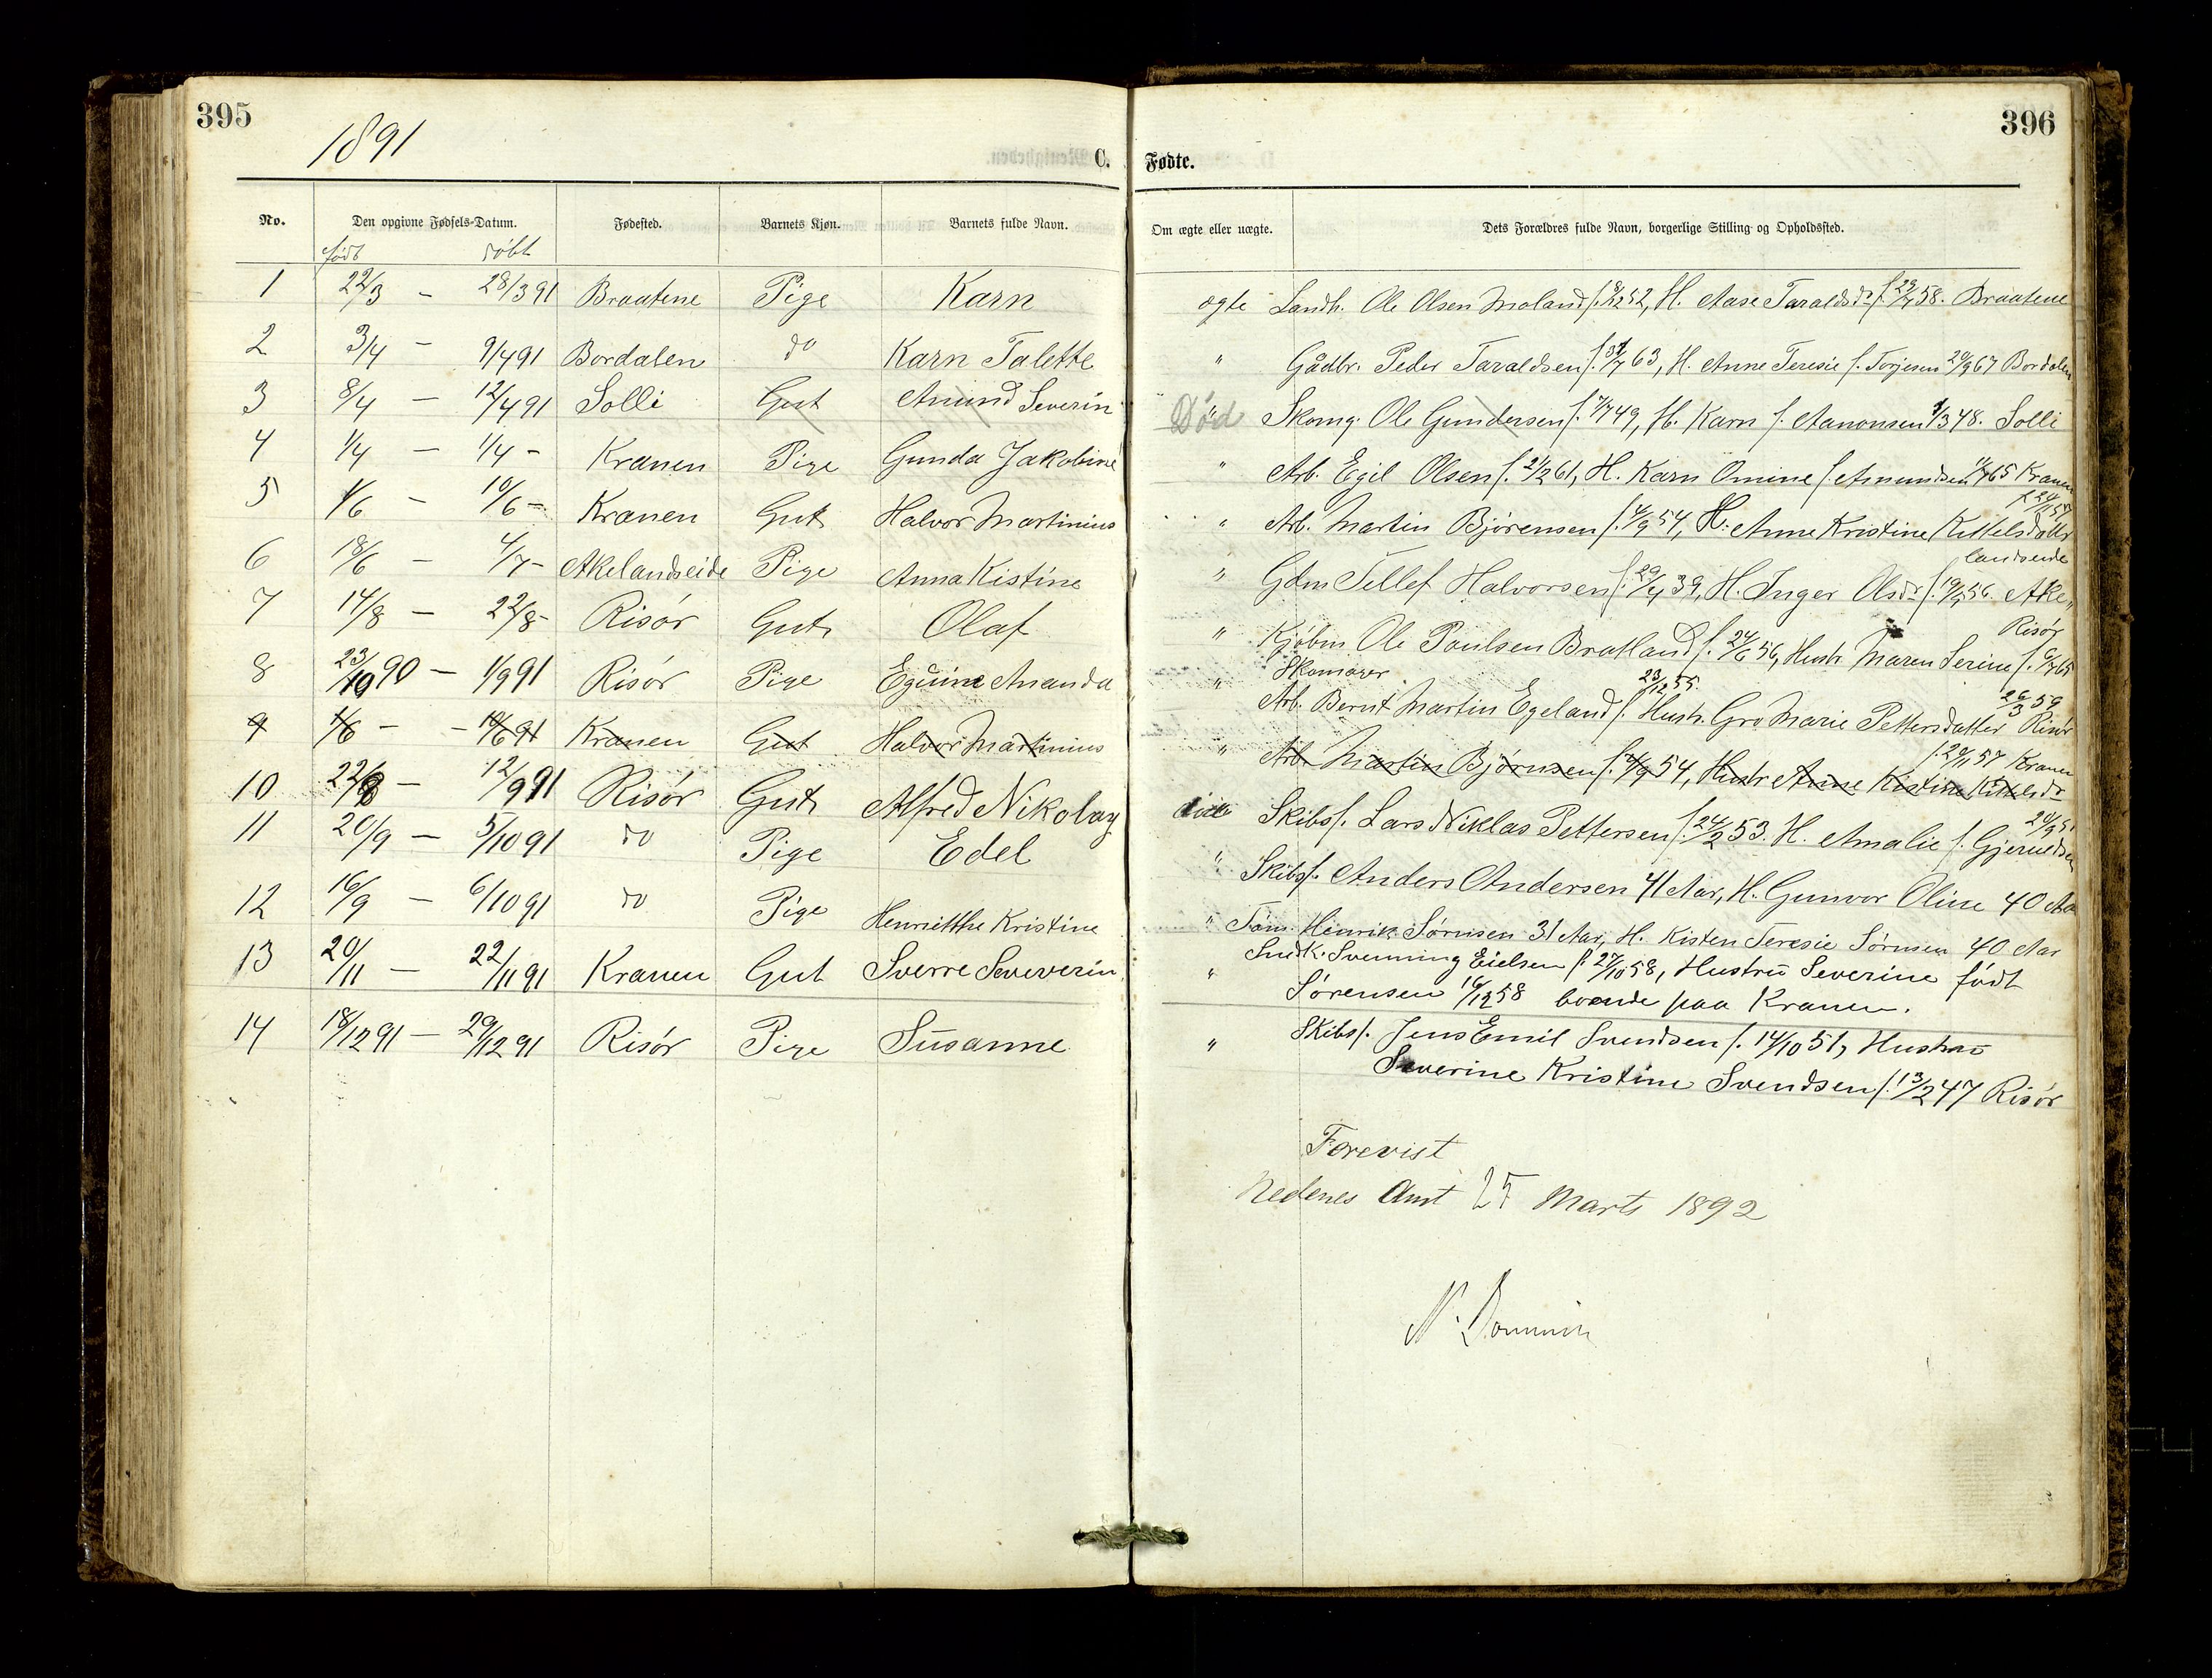 395
1891
C.
No. Den opgivne Fødsels-Datum. Fødested. Barnets Kjøn. Barnets fulde Navn.
født døbt
1 22/3 - 28/3 91 Braatene Pige Karn
2 3/4 - 9/4 91 Bordalen do Karn Talette
3 8/4 - 12/4 91 Solli Gut Amund Severin
4 1/4 - 1/4 - Kranen Pige Gunda Jakobine
5 1/6 - 10/6 - Kranen Gut Halvor Martinius
6 18/6 - 4/7 - Akelandseide Pige Anna Kistine
7 14/8 - 22/8 - Risør Gut Olaf
8 23/10 90 - 1/9 91 Risør Pige Eguine Amanda
9 1/6 - - 10/6 91 Kranen Gut Halvor Martinius
10 22/8 - 12/9 91 Risør Gut Alfred Nikolay
11 20/9 - 5/10 91 do Pige Edel
12 16/9 - 6/10 91 do Pige Henrietthe Kristine
13 20/11 - 22/11 91 Kranen Gut Sverre Seveverin
14 18/12 91 - 29/12 91 Risør Pige Susanne
396
Fødte.
Om ægte eller uægte. Dets Forældres fulde Navn, borgerlige Stilling og Opholdssted.
ægte Landh. Ole Olsen Moland f. 52, H. Aase Taraldsdr f. 58. Braatene
" Gådbr. Peder Taraldsen f. 63, H. Anne Teresie f. Torjesen 20/9 67 Bordalen
Død " Skomg. Ole Gundersen f. 7/7 49, H. Karn f. Aanonsen 1/3 48. Solli
" Arb. Egil Olsen f. 21/2 61, H. Karn Omine f. Amundsen 65 Kranen
f. 24/11 57
" Arb. Martin Bjørensen f. 4/9 54, H: Anne Kristine Kittelsdatter
landseide
" Gdm Tellef Halvorsen f. 29/4 39, H. Inger Olsdr f. 19/9 56. Ake„
Risør
" Kjøbm Ole Poulsen Bratland f. 24/6 56, Hustr. Maren Serine f. 6/7 65
Skomager 23/12 55.
" Arb. Bernt Martin Egeland f. Hustr. Gro Marie Pettersdatter Risør
26/3 59
f. 20/11 57 Kranen
" Arb. Martin Bjørnsen f. 4/9 54, Hustr Anne Kistine Kittelsdr
24/9 51
Skibsf. Lars Niklas Pettersen f. 24/2 53. H. Amalie f. Gjeruldsen
" Skibsf. Anders Andersen 41 Aar, H. Gunvor Oline 40 Aar
" Tøm. Henrik Sørnsen 31 Aar, H. Kisten Teresie Sørnsen 40 Aar
" Snedk. Svenning Eielsen f. 27/10 58, Hustru Severine født
Sørensen 16/12 58 boende paa Kranen.
" Skibsf. Jens Emil Svendsen f. 14/10 51, Hustru
Severine Kristine Svendsen f. 13/2 47 Risør
Forevist
Nedenes Amt 25 Marts 1892